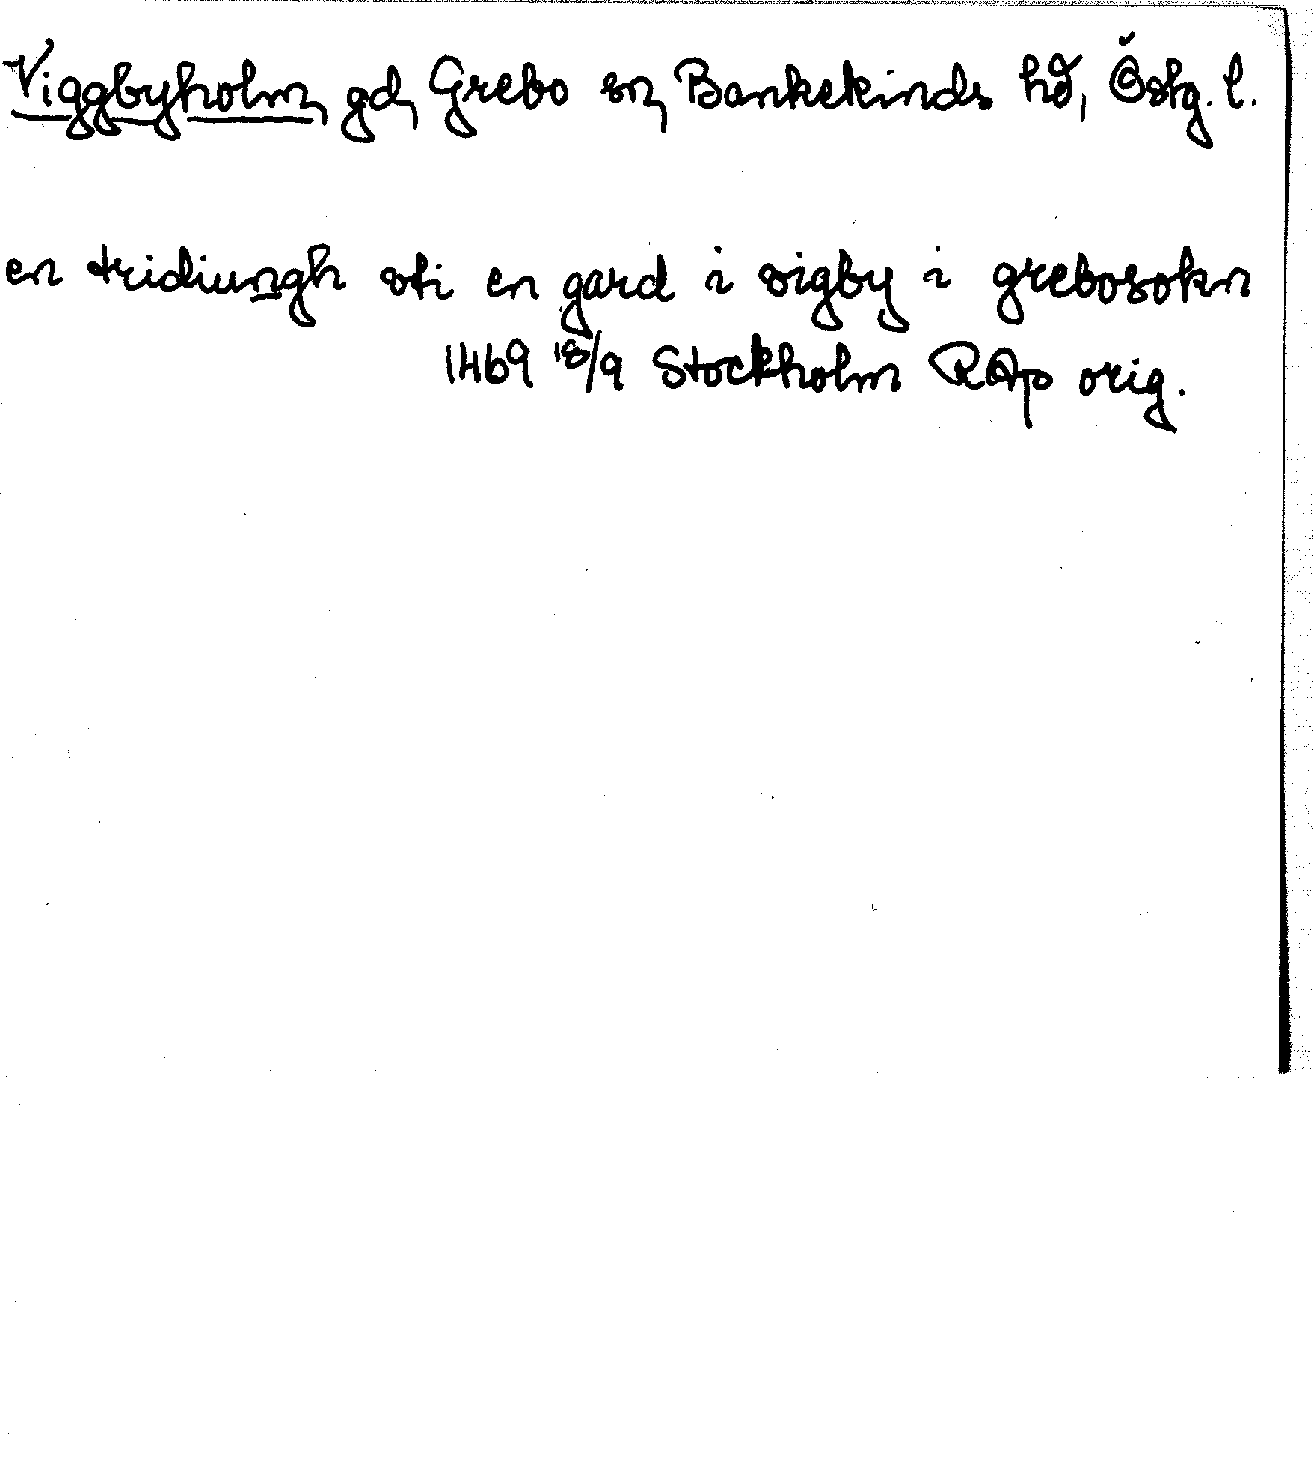 Viggbyholm, gd, Grebo sn, Bankekinds hd, Östg. l.
en tridiungh vti en gard i vigby i grebosokn
1469 18/9 Stockholm RAp orig.